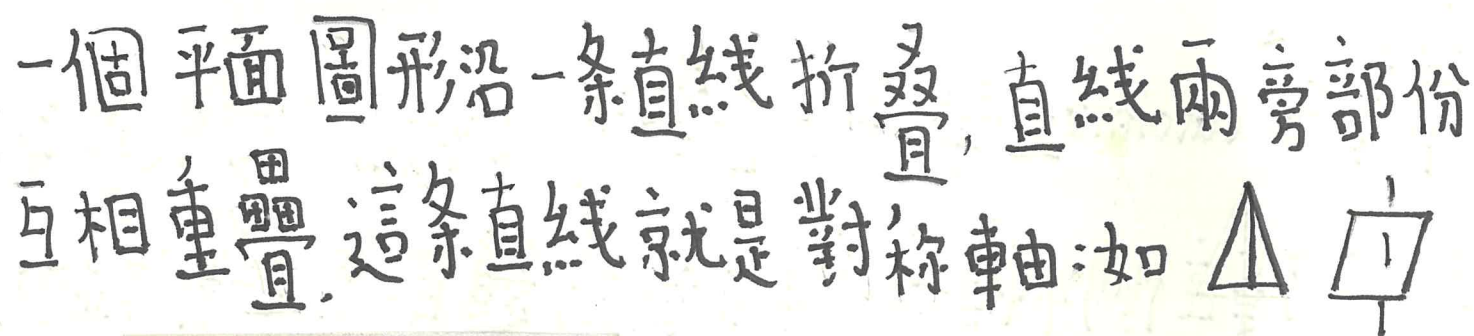 一個平面圖形沿一条直綫折叠,直綫兩旁部份
互相重疊.這条直綫就是對称軸:如